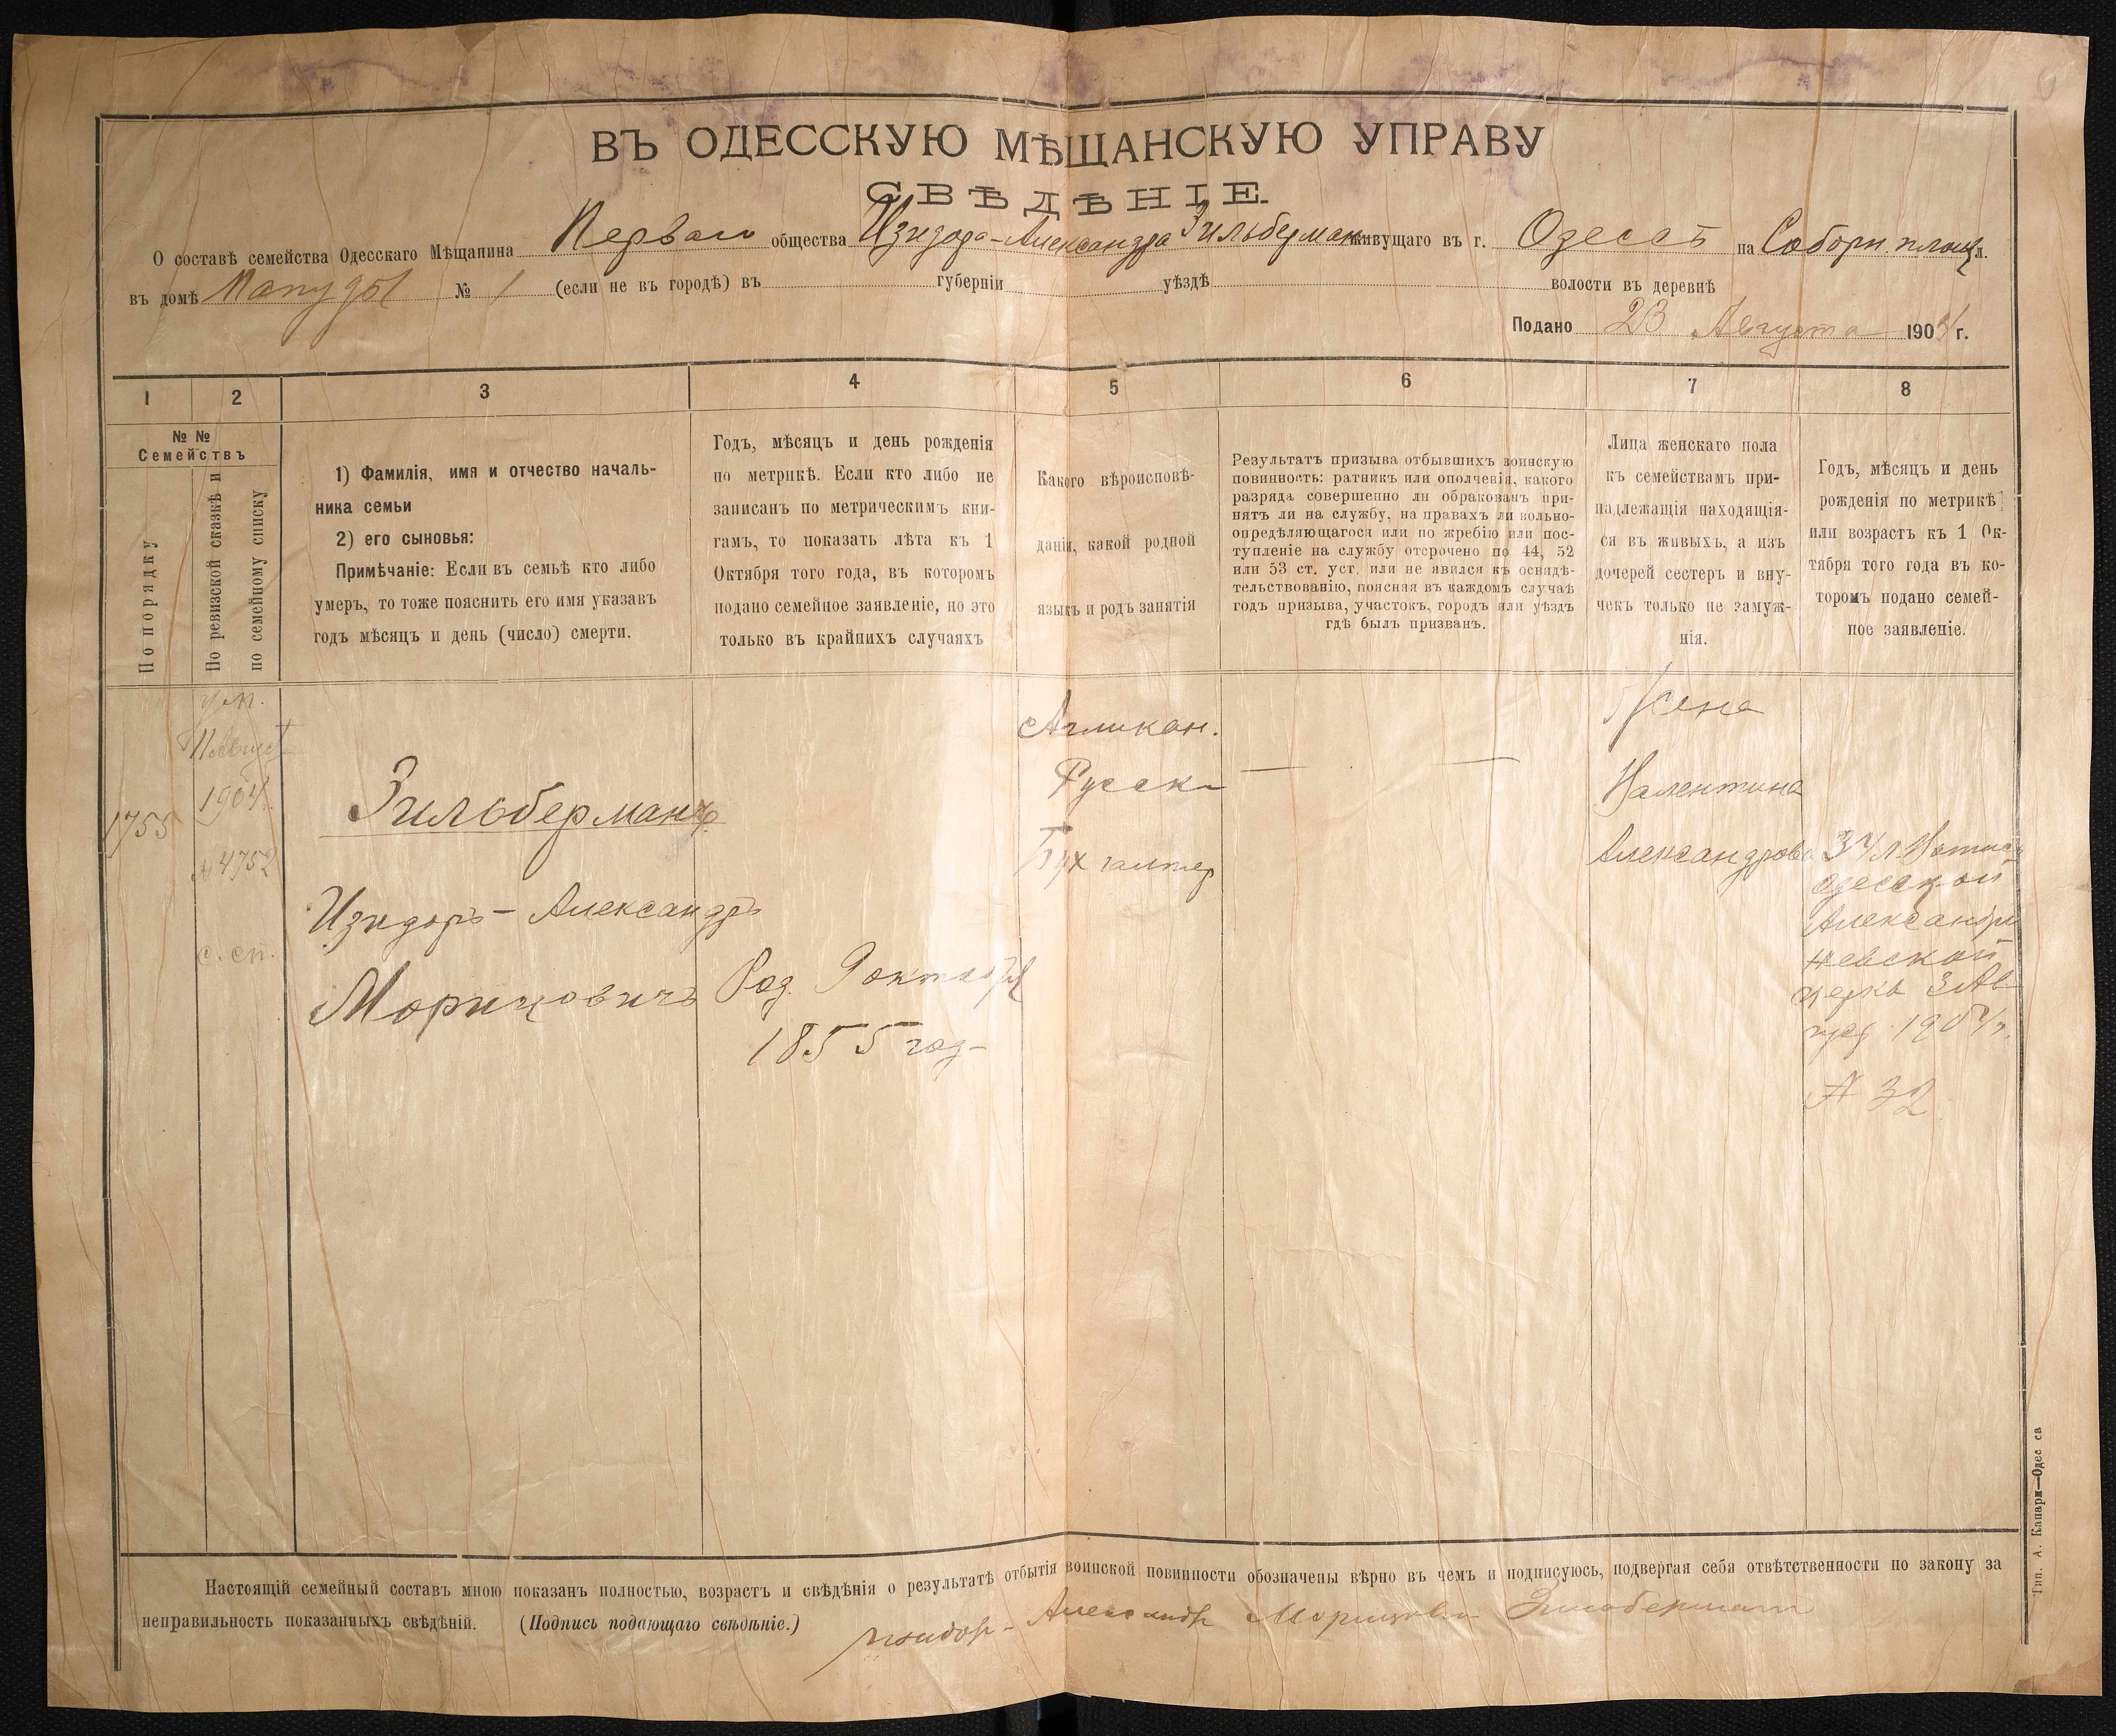 ВЪ ОДЕССКУЮ МѢЩАНСКУЮ УПРАВУ
СВѢДѢНІЕ.
О составѣ семейства Одесскаго Мѣщанина Перваго общества Изидора-Александра Зильберман живущаго въ г. Одессѣ на Соборн. площ. л.
въ домѣ Папудовы № 1 (если не въ городѣ) въ губерніи уѣздѣ волости въ деревнѣ
Подано 23 Августа 1904 г.
1
2
3
4
5
6
7
8
№ №
Семействъ
По порядку
По ревизской сказкѣ и
по семейному списку
1) Фамилія, имя и отчество началь-
ника семьи
2) его сыновья:
Примѣчаніе: Если въ семьѣ кто либо
умеръ, то тоже пояснить его имя указавъ
годъ мѣсяцъ и день (число) смерти.
Годъ, мѣсяцъ и день рожденія
по метрикѣ. Если кто либо не
записанъ по метрическимъ кни-
гамъ, то показать лѣта къ 1
Октября того года, въ которомъ
подано семейное заявленіе, но это
только въ крайнихъ случаяхъ
Какого вѣроисповѣ-
данія, какой родной
языкъ и родъ занятія
Результатъ призыва отбывшихъ воинскую
повинность: ратникъ или ополченія, какого
разряда совершенно ли обракованъ при-
нятъ ли на службу, на правахъ ли вольно-
опредѣляющагося или по жребію или пос-
тупленіе на службу отсрочено по 44, 52
или 53 ст. уст. или не явился къ освидѣ-
тельствованію, поясняя въ каждомъ случаѣ
годъ призыва, участокъ, городъ или уѣздъ
гдѣ былъ призванъ.
Лица женскаго пола
къ семействамъ при-
надлежащія находящія-
ся въ живыхъ, а изъ
дочерей сестеръ и вну-
чекъ только не замуж-
нія.
Годъ, мѣсяцъ и день
рожденія по метрикѣ
или возрастъ къ 1 Ок-
тября того года въ ко-
торомъ подано семей-
ное заявленіе.
1755
ум.
11 Август
1904
№ 4752
с. сп.
Зильберманъ
Изидоръ-Александръ
Морицовичъ
Род. 9 октября
1855 год-
Агликан.
Русск-
Бухгалтер
— —
Жена
Валентина
Александрова
34 л.
Одесской
Александро
Невской
церкв 3 Ав
1904 г.
№ 32
Настоящій семейный составъ мною показанъ полностью, возрастъ и свѣдѣнія о результатѣ отбытія воинской повинности обозначены вѣрно въ чемъ и подписуюсь, подвергая себя отвѣтственности по закону за
неправильность показанныхъ свѣдѣній. (Подпись подающаго свѣдѣніе.) Изидор-Александр Морицович Зильберман
Тип. А. Капари—Одес св